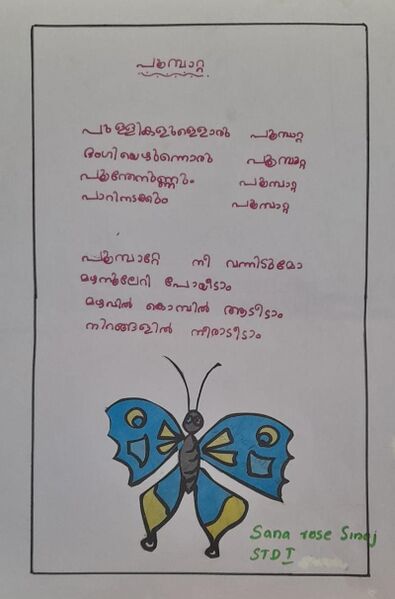 പൂമ്പാറ്റ
പുള്ളികളുള്ളൊരു പൂമ്പാറ്റ
ഭംഗിയെഴുന്നൊരു പൂമ്പാറ്റ
പൂന്തേനുണ്ണും പൂമ്പാറ്റ
പാറിനടക്കും പൂമ്പാറ്റ
പൂമ്പാറ്റേ നീ വന്നിടുമോ
പോയീടാം
മഴവിൽ കൊമ്പിൽ ആടീടാം
നിറങ്ങളിൽ നീരാടീടാം
Sana rose Siroj
STD I